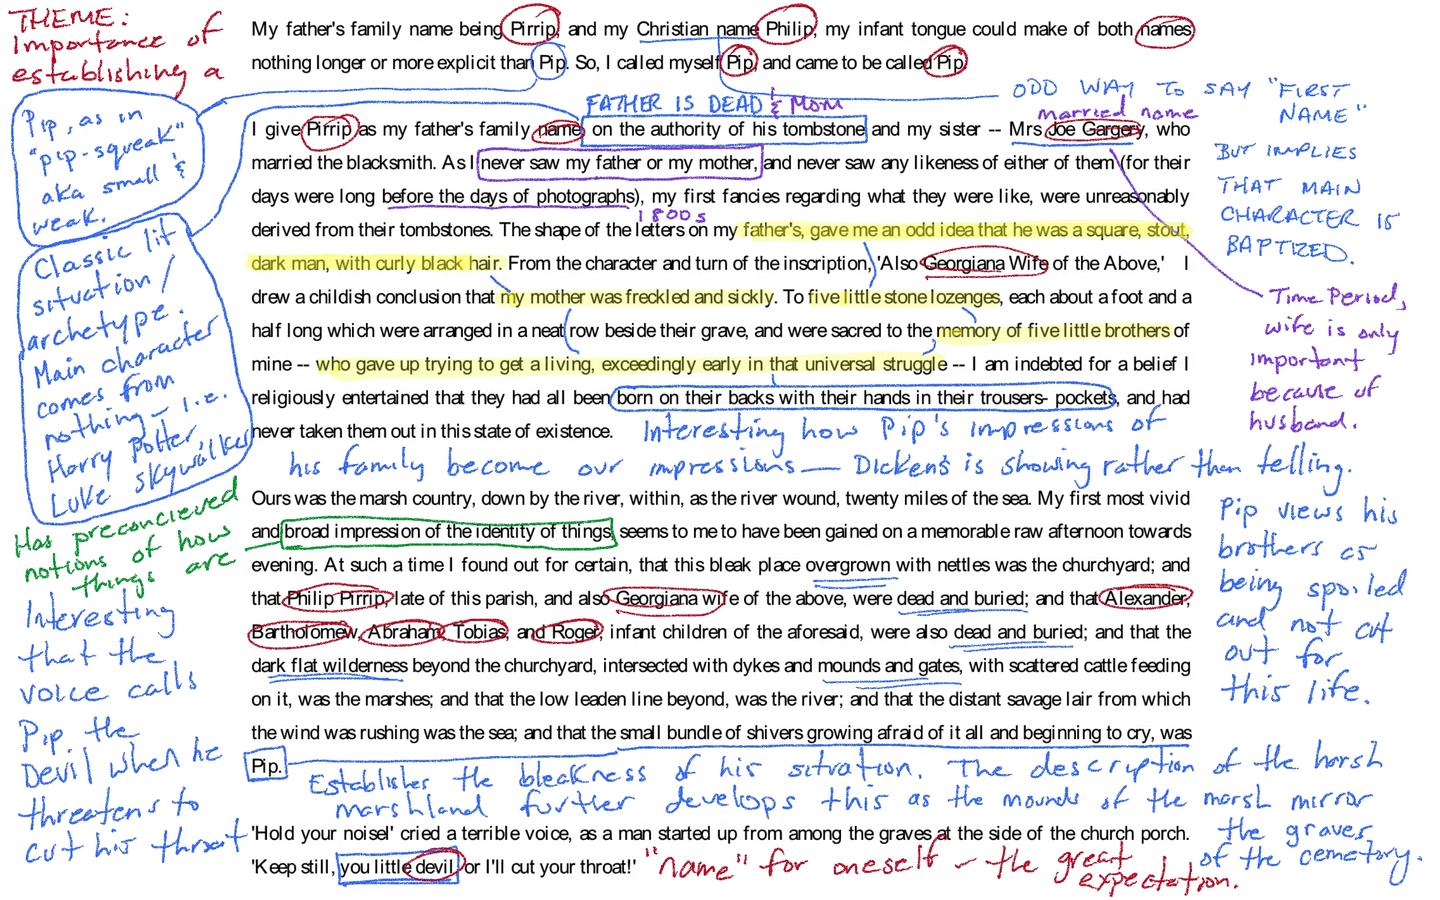 THEME:
Importance of
establishing a
My father's family name being Pirrip, and my Christian name Philip, my infant tongue could make of both names
nothing longer or more explicit than Pip. So, I called myself Pip, and came to be called Pip.
Pip, as in
"pip-squeak"
aka small &
weak.
FATHER IS DEAD & Mom
ODD WAY TO SAY "FIRST
NAME"
married name
BUT IMPLIES
THAT MAIN
CHARACTER IS
BAPTIZED.
I give Pirrip as my father's family name, on the authority of his tombstone and my sister -- Mrs Joe Gargery, who
married the blacksmith. As I never saw my father or my mother, and never saw any likeness of either of them (for their
days were long before the days of photographs), my first fancies regarding what they were like, were unreasonably
1800s
derived from their tombstones. The shape of the letters on my father's, gave me an odd idea that he was a square, stout,
dark man, with curly black hair. From the character and turn of the inscription, 'Also Georgiana Wife of the Above,' I
drew a childish conclusion that my mother was freckled and sickly. To five little stone lozenges, each about a foot and a
half long which were arranged in a neat row beside their grave, and were sacred to the memory of five little brothers of
mine -- who gave up trying to get a living, exceedingly early in that universal struggle -- I am indebted for a belief I
religiously entertained that they had all been born on their backs with their hands in their trousers- pockets, and had
never taken them out in this state of existence.
Classic lit
situation/
archetype.
Main character
comes from
nothing - i.e.
Harry Potter,
Luke Skywalker
Time Period,
wife is only
important
because of
husband.
Interesting how Pip's impressions of
his family become our impressions — Dickens is showing rather than telling.
Ours was the marsh country, down by the river, within, as the river wound, twenty miles of the sea. My first most vivid
and broad impression of the identity of things, seems to me to have been gained on a memorable raw afternoon towards
evening. At such a time I found out for certain, that this bleak place overgrown with nettles was the churchyard; and
that Philip Pirrip, late of this parish, and also Georgiana wife of the above, were dead and buried; and that Alexander,
Bartholomew, Abraham, Tobias, and Roger, infant children of the aforesaid, were also dead and buried; and that the
dark flat wilderness beyond the churchyard, intersected with dykes and mounds and gates, with scattered cattle feeding
on it, was the marshes; and that the low leaden line beyond, was the river; and that the distant savage lair from which
the wind was rushing was the sea; and that the small bundle of shivers growing afraid of it all and beginning to cry, was
Pip.
Has preconcieved
notions of how
things are
Interesting
that the
voice calls
Pip the
Devil when he
threatens to
cut his throat
Pip views his
brothers as
being spoiled
and not cut
out for
this life.
Establishes the bleakness of his situation. The description of the harsh
marshland further develops this as the mounds of the marsh mirror
the graves
of the cemetory.
'Hold your noise!' cried a terrible voice, as a man started up from among the graves at the side of the church porch.
'Keep still, you little devil, or I'll cut your throat!'
"name" for oneself - the great
expectation.